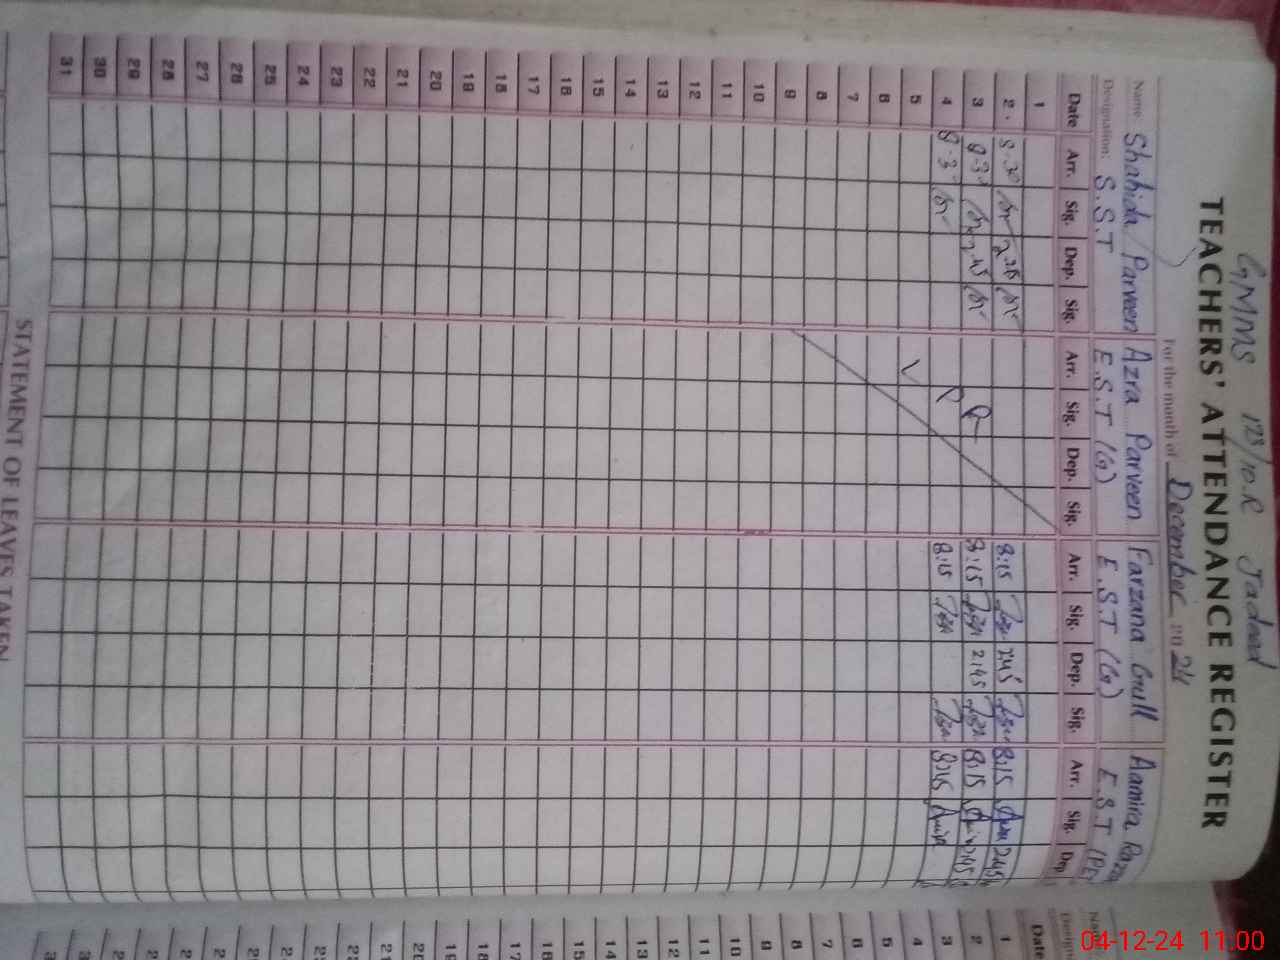 GMMS 123/10.R Jadeed
TEACHERS' ATTENDANCE REGISTER
For the month of December 2024
Name Shahida Parveen Azra Parveen Farzana Gull Aamira
Designation: S.S.T E.S.T (G) E.S.T (G) E.S.T
Date Arr. Sig. Dep. Sig. Arr. Sig. Dep. Sig. Arr. Sig. Dep. Sig. Arr. Sig. Dep.
1
2 8:15 2:45 8:15 2:45
3 2:45 8:15 2:45 8:15 2:45
4 8:15
5
6
7
8
9
10
11
12
13
14
15
16
17
18
19
20
21
22
23
24
25
26
27
28
29
30
31
STATEMENT OF LEAVES TAKEN
Date
1
2
3
4
5
6
7
8
9
10
11
12
13
14
15
16
17
18
19
20
04-12-24 11:00